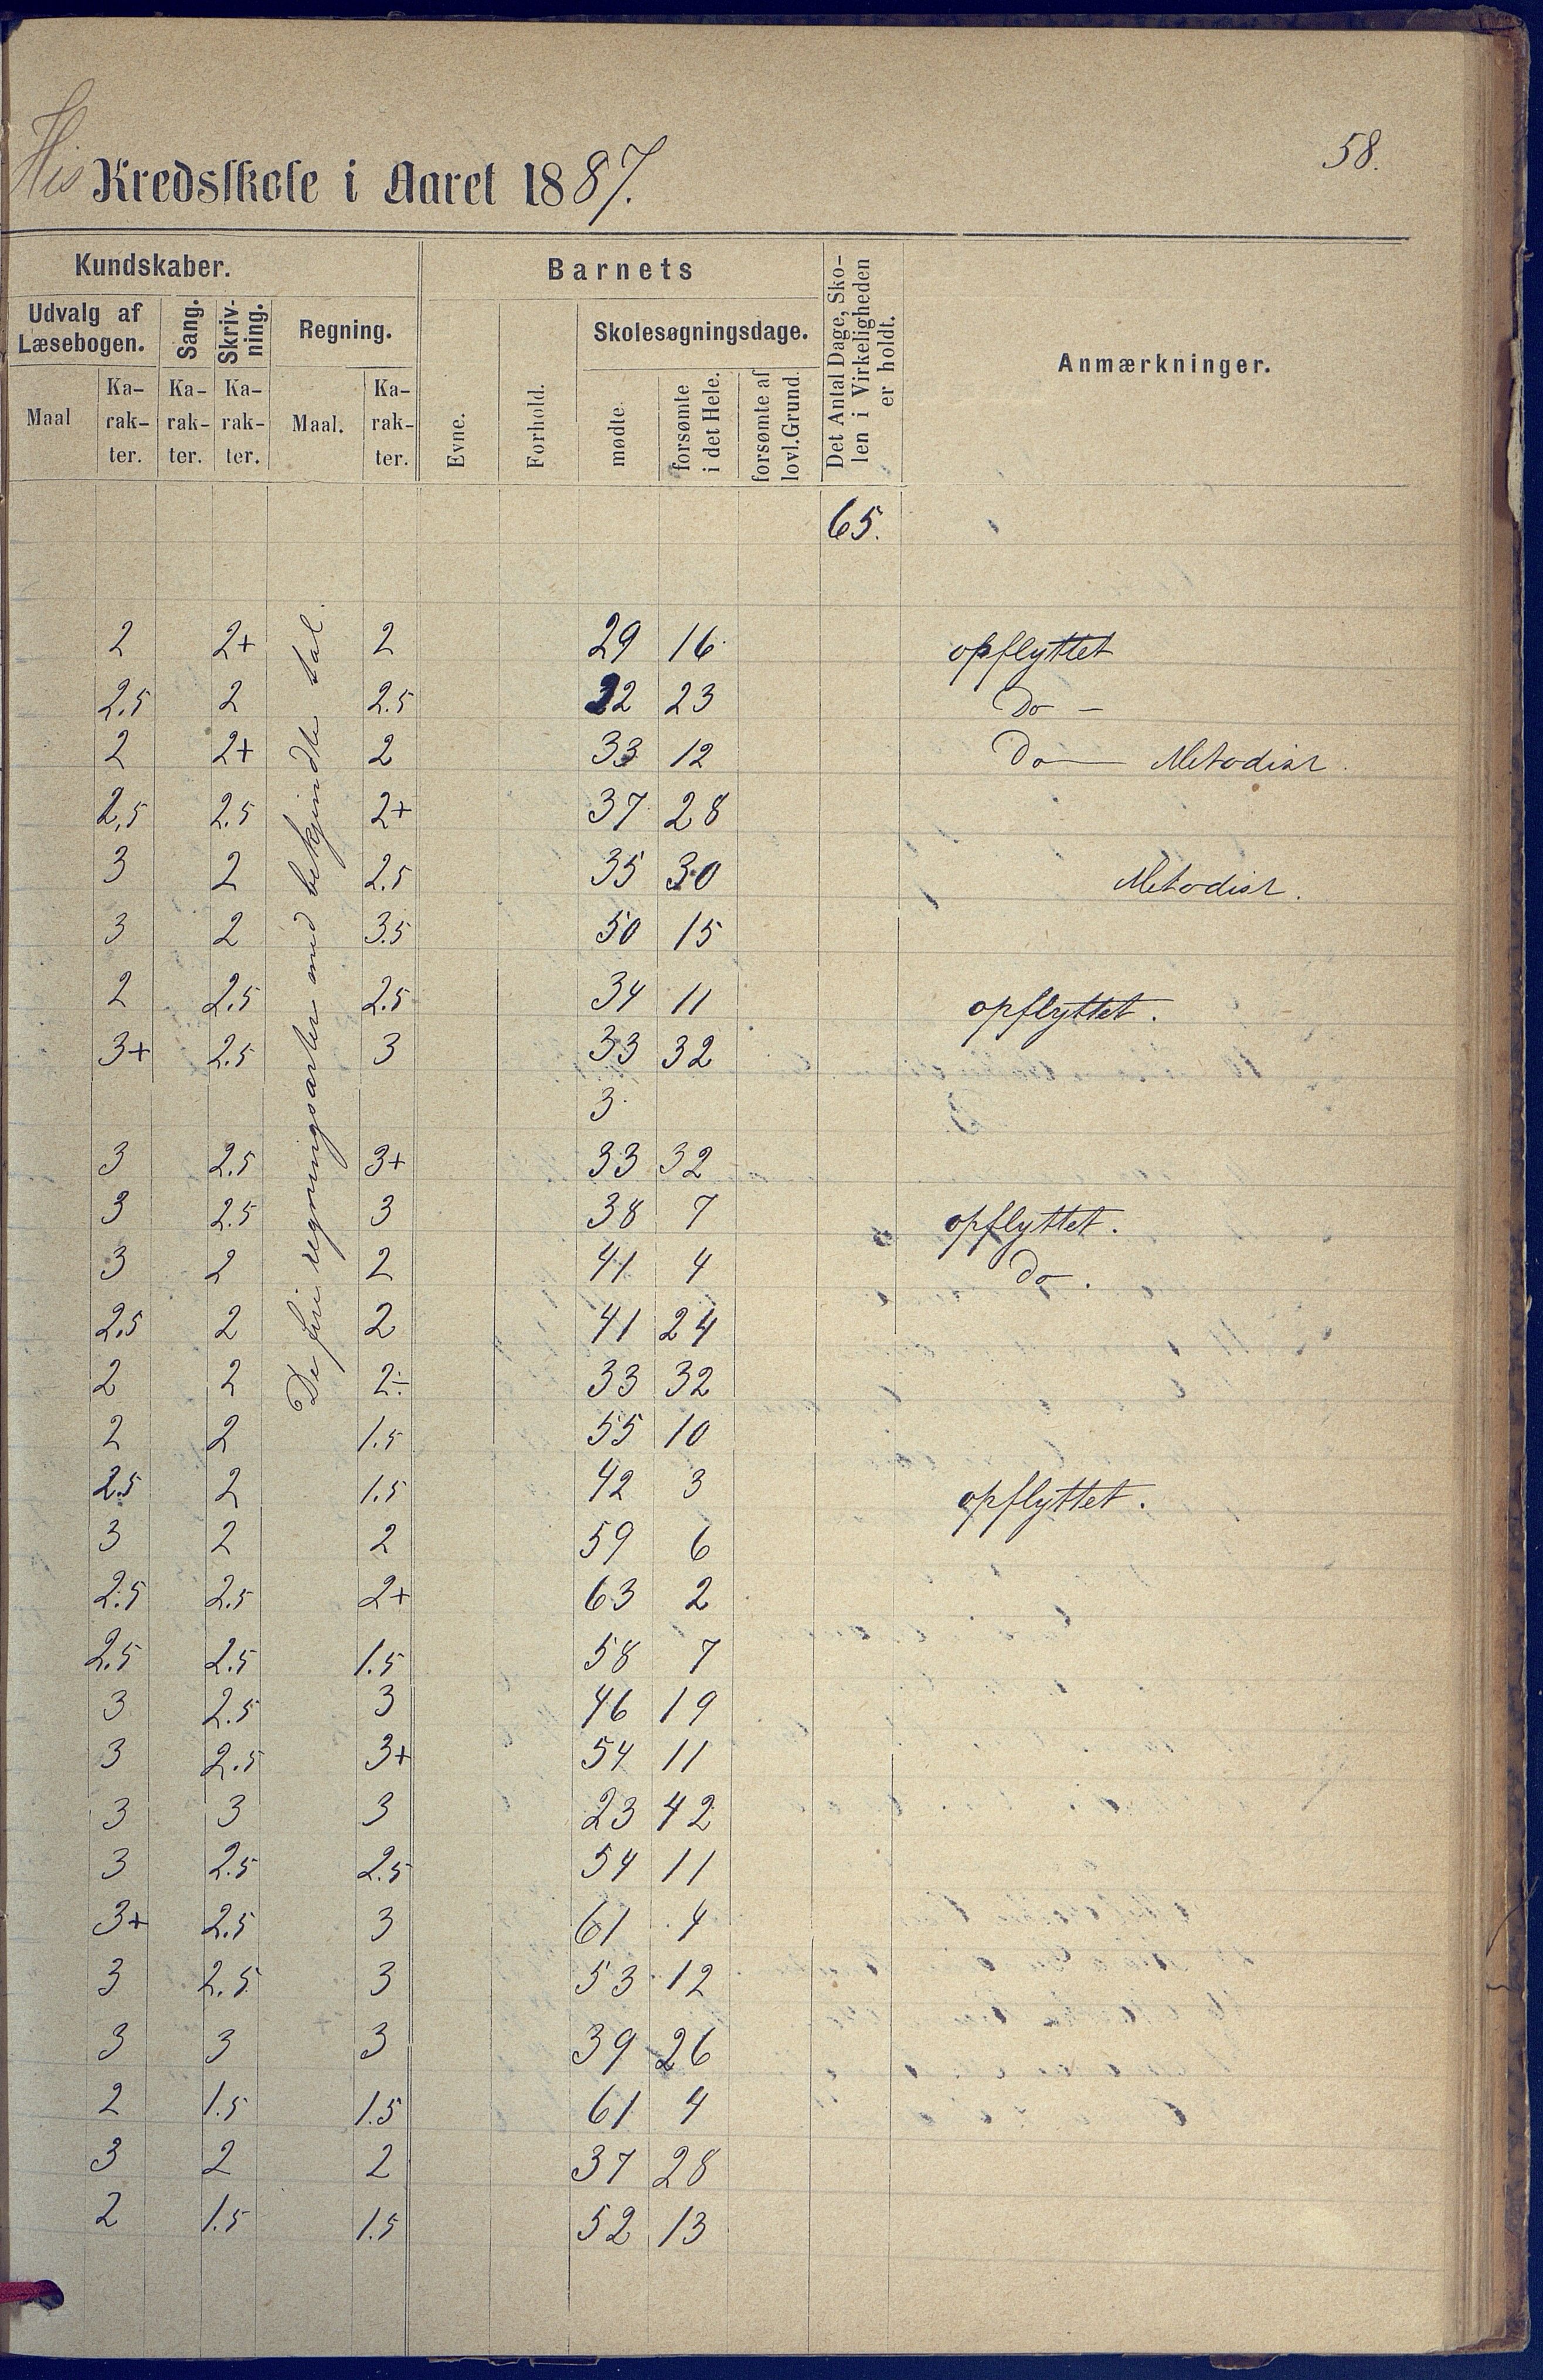 58.
His Kredsskole i Aaret 1887.
Kundskaber. Barnets Det Antal Dage, Sko-
len i Virkeligheden
er holdt. Anmærkninger.
Udvalg af
Læsebogen. Sang. Skriv-
ning. Regning. Evne. Forhold. Skolesøgningsdage.
Maal Ka-
rak-
ter. Ka-
rak-
ter. Ka-
rak-
ter. Maal. Ka-
rak-
ter. mødte forsømte
i det Hele. forsømte af
lovl. Grund.
65.
De fire regningsarter med bekjendte tal.
2 2+ 2 29 16 opflyttet
2.5 2 2.5 22 23 Do —
2 2+ 2 33 12 Do — Metodist.
2,5 2.5 2+ 37 28
3 2 2.5 35 30 Metodist.
3 2 3.5 50 15
2 2.5 2.5 34 11 opflyttet.
3+ 2.5 3 33 32
3
3 2.5 3+ 33 32
3 2.5 3 38 7 opflyttet.
3 2 2 41 4 Do.
2.5 2 2 41 24
2 2 2÷ 33 32
2 2 1.5 55 10
2.5 2 1.5 42 3 opflyttet.
3 2 2 59 6
2.5 2.5 2+ 63 2
2.5 2.5 1.5 58 7
3 2.5 3 46 19
3 2.5 3+ 54 11
3 3 3 23 42
3 2.5 2.5 54 11
3+ 2.5 3 61 4
3 2.5 3 53 12
3 3 3 39 26
2 1.5 1.5 61 4
3 2 2 37 28
2 1.5 1.5 52 13